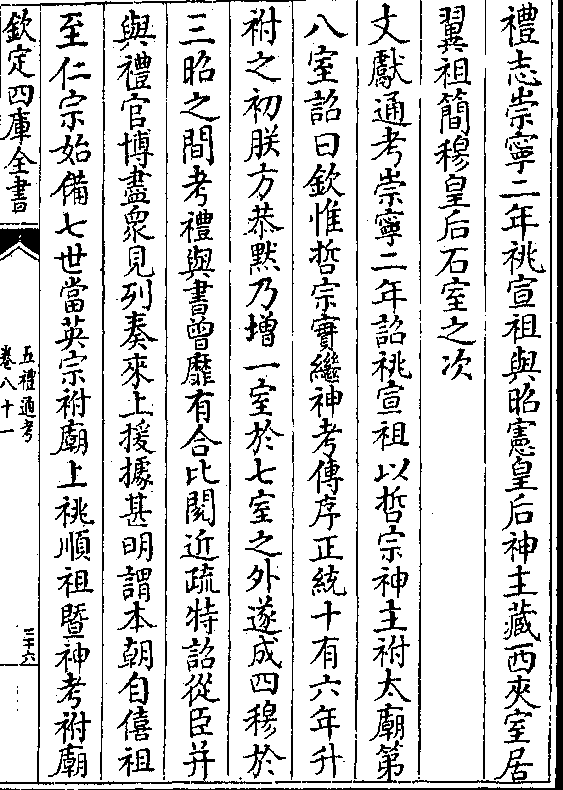 禮志崇寧二年祧宣祖與昭憲皇后神主藏西夾室居
翼祖簡穆皇后石室之次
文獻通考崇寧二年詔祧宣祖以哲宗神主祔太廟第
八室詔曰欽惟哲宗實繼神考傳序正統十有六年升
祔之初朕方恭默乃增一室於七室之外遂成四穆於
三昭之間考禮與書曾靡有合比閱近疏特詔從臣并
與禮官博盡衆見列奏來上援據甚明謂本朝自僖祖
至仁宗始備七世當英宗祔廟上祧順祖暨神考祔廟
欽定四庫全書
五禮通考
卷八十一
三十六